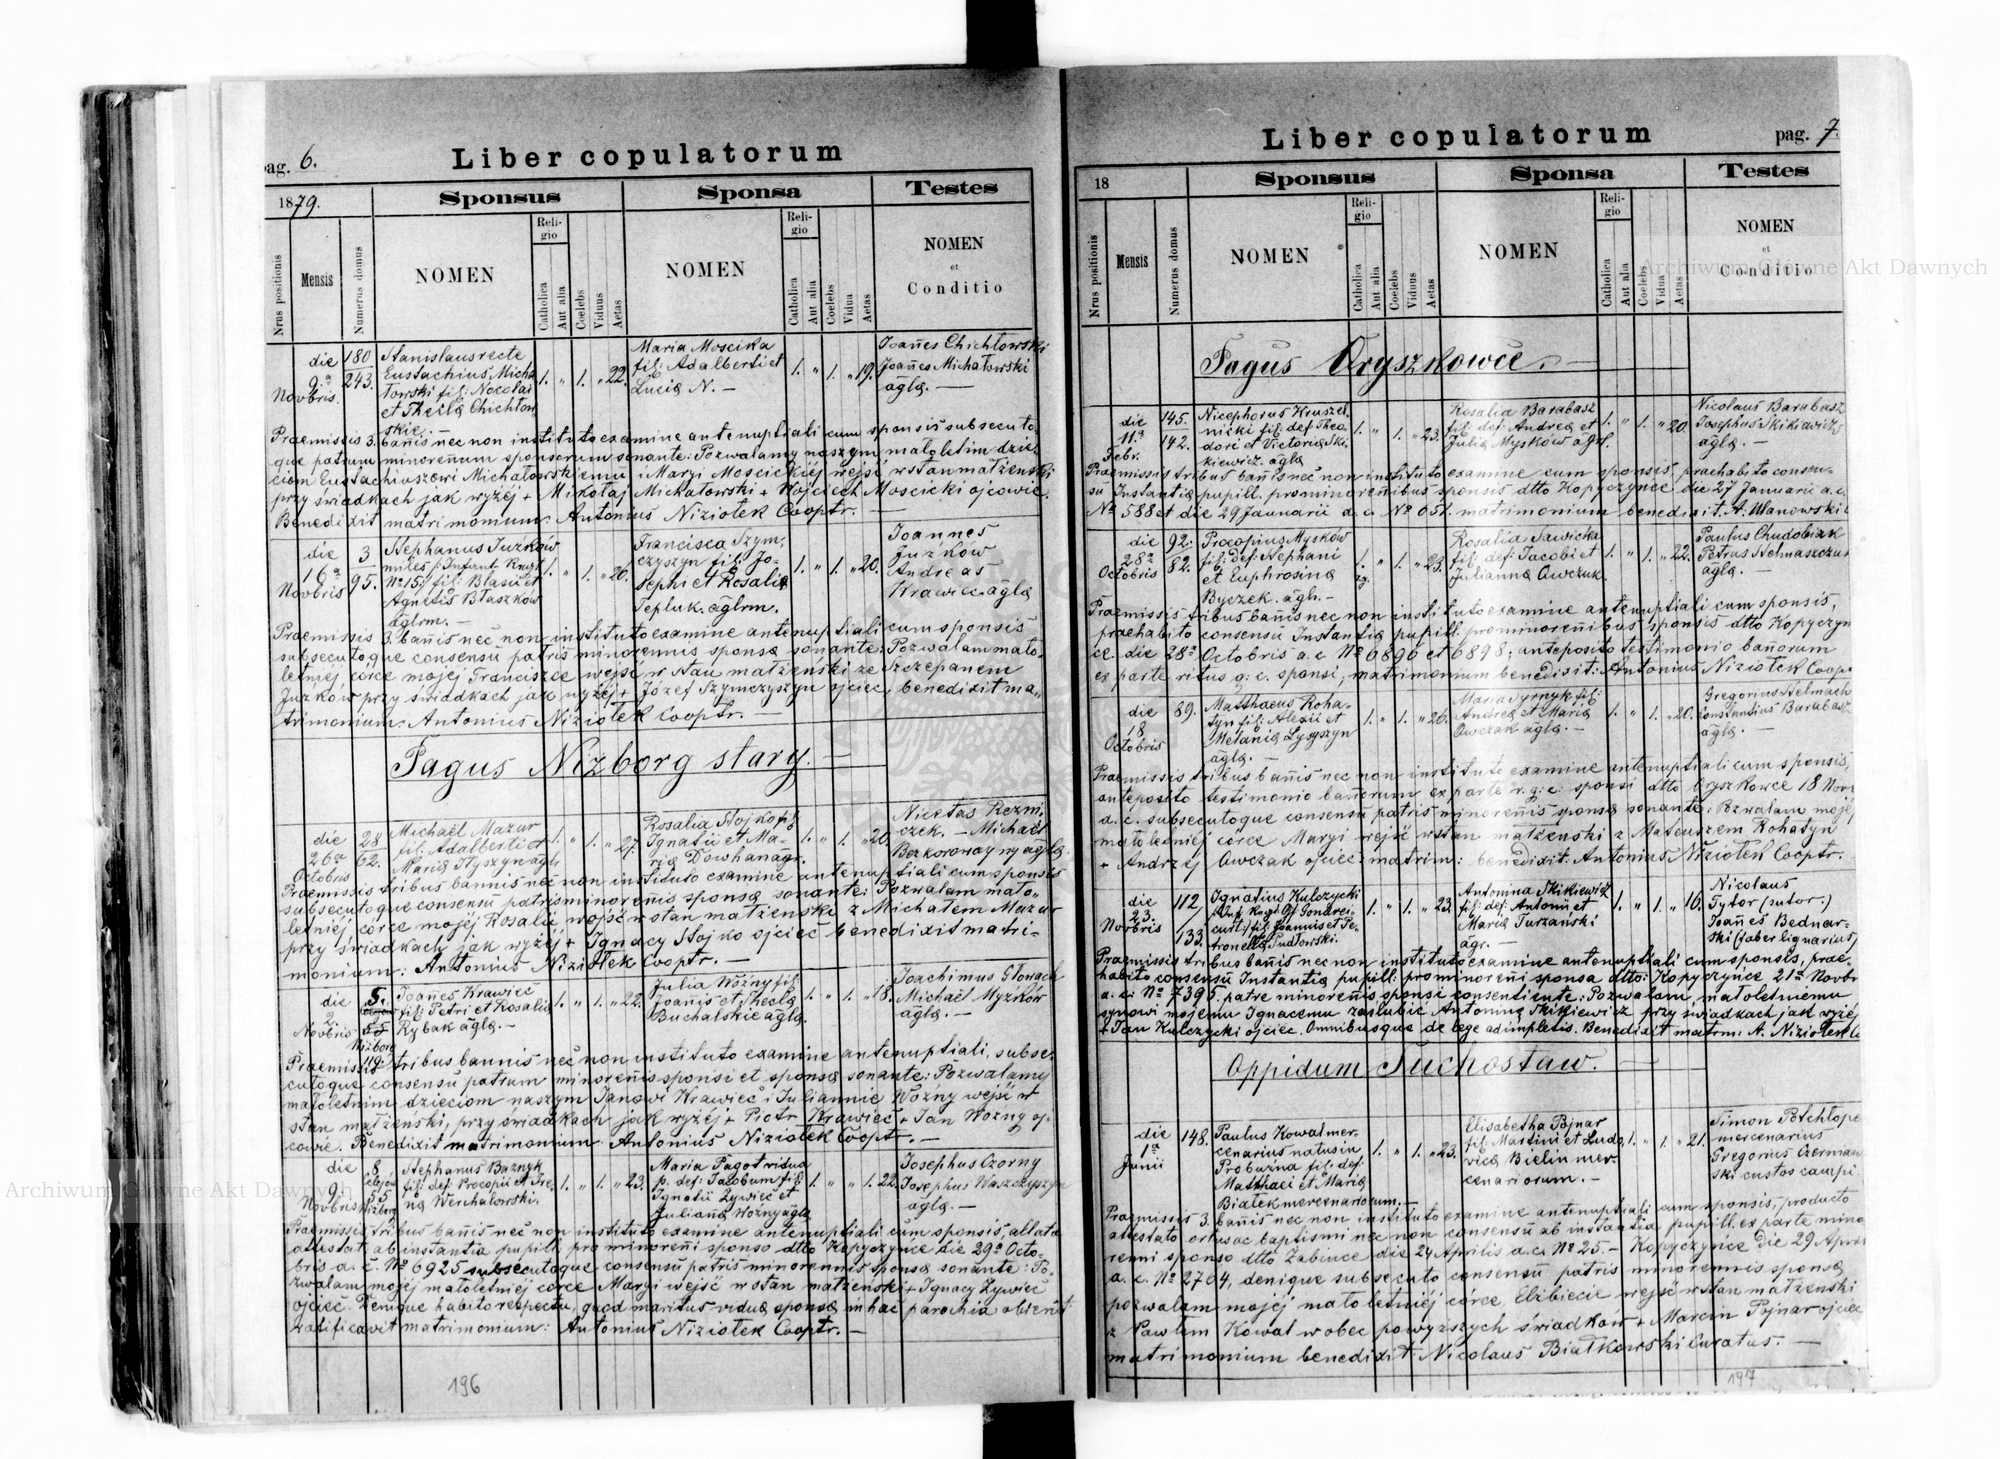 pag. 6.
Liber copulatorum
1879.
Sponsus
Sponsa
Testes
Nrus positionis
Mensis
Numerus domus
NOMEN
Religio
Catholica
Aut alia
Coelebs
Viduus
Aetas
NOMEN
Religio
Catholica
Aut alia
Coelebs
Vidua
Aetas
NOMEN
et
Conditio
die 9a Novbris.
180
243.
Stanislaus recte
Eustachius Micha
łowski fil: Nicolai
et Thecla Chichłow
skie. —
1. " 1. " 22.
Maria Moscika
fil: Adalberti et
Lucia N. —
1. " 1. " 19.
Joañes Chichłowski
Joañes Michałowski
agla. —
Praemissis 3. bañis nec non instituto examine antenuptiali cum sponsis subsecuto
que patrum minorennum sponsorum sonante: Pozwalamy naszym małoletim dzie
ciom Eustachiuszowi Michałowskiemu i Maryi Moscickiéj wejść w stan małżeński
przy świadkach jak wyżéj + Mikołaj Michałowski + Wojciech Moscicki ojcowie.
Benedixit matrimonium Antonius Niziołek Cooptr. —
die 16a Novbris
3
95.
Stephanus Juzków
miles /: Infant. Rngt
No 15 :/ fil: Blasii et
Agnetis Błaszków
aglrm. —
1. " 1. " 26.
Francisca Szym,
czyszyn fil: Jo-
sephi et Rosalia
Sepluk. aglrm.
1. " 1. " 20.
Joannes
Juzków
Andreas
Krawiec. agla
Praemissis 3. bañis nec non instituto examine antenuptiali cum sponsis
subsecutoque consensu patris minorennis sponsa sonante: Pozwalam mało-
letniéj córce mojéj Franciszce wejść w stan małżeński ze Szczepanem
Juzków przy świadkach jak wyżéj + Józef Szymczyszyn ojciec, benedixit ma-
trimonium: Antonius Niziołek Cooptr. —
Pagus Nizborg stary. —
die 26a Octobris
28
62.
Michaël Mazur
fil. Adalberti et
Maria Hyszyn aglr
1. " 1. " 27.
Rosalia Stojko fil:
Ignatii et Ma-
ria Dowhan agr.
1. " 1. " 20.
Nicetas Rezni
czek. — Michaël
Bezkorowayny agla.
Praemissis tribus bannis nec non instituto examine antenuptiali cum sponsis
subsecutoque consensu patris minorenis sponsa sonante: Pozwalam mało-
letniéj córce mojéj Rosalii wejść w stan małżeński z Michałem Mazur
przy świadkach jak wyżéj + Ignacy Stojko ojciec benedixit matri-
monium: Antonius Niziołek Cooptr. —
die 2. Novbris
5.
55
Nizborg
119.
Joañes Krawiec
fil: Petri et Rosalia
Rybak agla. —
1. " 1. " 22.
Julia Woźny fil.
Joañis et Thecla
Buchalskie agla.
1. " 1. " 18.
Joachimus Głowach
Michaël Myśków
agla. —
Praemissis tribus bannis nec non instituto examine antenuptiali, subse,
cutoque consensu patrum minorenis sponsi et sponsa sonante: Pozwalamy
małoletnim dzieciom naszym Janowi Krawiec i Juliannie Woźny wejść w
stan małżeński, przy świadkach jak wyżéj + Piotr Krawiec + Jan Woźny oj
cowie. Benedixit matrimonium Antonius Niziołek Coopt. —
die 9. Novbris
8
55
Nizborg
Stephanus Baznyk
fil: def: Procopii et Ire,
na Werchalowski.
1. " 1. " 23.
Maria Pagot vidua
p. def: Jacobum fil:
Ignatii Żywiec et
Juliana Woźny agla
1. " " 1. 22.
Josephus Czorny
Josephus Waszczyszyn
agla. —
Praemissis tribus bañis nec non instituto examine antenuptiali cum sponsis, allata
attestat. ab instantia pupill. pro minoreñi sponso dtto Kopyczyńce die 29a Octo-
bris a. c. No 6925 subsecutoque consensu patris minorennis sponsa sonante: Po-
zwalam mojej małoletniéj córce Maryi wejść w stan małżeński + Ignacy Żywiec
ojciec. Denique habito respectu, quod maritus vidua sponsa in hac parochia obierit
ratificavit matrimonium: Antonius Niziołek Cooptr. —
196
Liber copulatorum
pag. 7.
18
Sponsus
Sponsa
Testes
Nrus positionis
Mensis
Numerus domus
NOMEN
Religio
Catholica
Aut alia
Coelebs
Viduus
Aetas
NOMEN
Religio
Catholica
Aut alia
Coelebs
Vidua
Aetas
NOMEN
et
Conditio
Pagus Oryszkowce. —
die 11.a Febr.
145.
142.
Nicephorus Kruszel
nicki fil. def Theo
dori et Victoria Ski
kiewicz. agla
1. " 1. " 23.
Rosalia Barabasz
fil: def: Andrea et
Julia Mysków agl.
1. " 1. " 20.
Nicolaus Barabasz
Josephus Skikiewicz
agla. —
Praemissis tribus bañis nec non instituto examine cum sponsis, praehabito consen-
su Instantia pupill. pro minoreñibus sponsis dtto Kopyczyńce die 27 Januarii a. c.
No 588 et die 29 Januarii a. c. No 651. matrimonium benedixit. A. Ulanowski
die 28a Octobris
92.
82.
Procopius Mysków
fil: def: Stephani
et Euphrosina
Byczek. agl. —
1. " 1. " 23.
Rosalia Sawicka
fil: def: Jacobi et
Julianna Owczuk.
1. " 1. " 22.
Paulus Chudobiak
Petrus Stelmaszczuk
agla. —
Praemissis tribus bañis nec non instituto examine antenuptiali cum sponsis,
praehabito consensu Instantia pupill. pro minoreñibus sponsis dtto Kopyczyn
ce. die 28a Octobris a. c No 6896 et 6898; anteposito testimonio bañorum
ex parte ritus g. c. sponsi, matrimonium benedixit: Antonius Niziołek Coop
die 18 Octobris
89.
Matthaeus Roha-
tyn fil: Alexii et
Melania Łysyszyn
agla. —
1. " 1. " 26.
Maria Syrnyk fil:
Andrea et Maria
Owczak agla. —
1. " 1. " 20.
Gregorius Stelmach
Constantius Barabasz
agla. —
Praemissis tribus bañis nec non instituto examine antenuptiali cum sponsis,
anteposito testimonio bañorum ex parte r. g. c: sponsi dtto Oryszkowce 18 Nov
a. c. subsecutoque consensu patris minoreñis sponsa sonante: Pozwalam mojéj
małoletniéj córce Maryi wejść w stan małżeński z Mateuszem Rohatyn
+ Andrzéj Owczak ojciec: matrim: benedixit: Antonius Niziołek Cooptr. —
die 23. Novbris
112
133.
Ignatius Kulczycki
fil: Joannis et Pe-
tronella Pudłowski.
1. " 1. " 23.
Antonina Skikiewicz
fil: def: Antonii et
Maria Turzański
agr. —
1. " 1. " 16.
Nicolaus
Tytor (sutor:)
Joañes Bednar-
ski (faber lignarius)
Praemissis tribus bañis nec non instituto examine antenuptiali cum sponsis, prae-
habito consensu Instantia pupill. pro minoreñi sponsa dtto: Kopyczyńce 21a Novbr
a. c: No 7395. patre minoreñis sponsi consentiente: Pozwalam, małoletniemu
synowi mojemu Ignacemu zaślubić Antoninę Skikiewicz przy świadkach jak wyżéj
+ Jan Kulczycki ojciec. Omnibusque de lege adimpletis. Benedixit matrm: A. Niziołek
Oppidum Suchostaw. —
die 1a Junii
148.
Paulus Kowal mer-
cenarius natus in
Probuzna fil: def:
Matthaei et Maria
Białek mercenariorum. —
1. " 1. " 23.
Elisabetha Pojnar
fil. Martini et Ludo,
vica Bielin mer-
cenariorum. —
1. " 1. " 21.
Simon Potchłope
mercenarius
Gregorius Czerman
ski custos campi.
Praemissis 3. bañis nec non instituto examine antenuptiali cum sponsis, producto
attestato ortus ac baptismi nec non consensu ab instantia pupill. ex parte mino
renni sponso dtto Zabince die 24 Aprilis a. c. No 25. — Kopyczyńce die 29 April
a. c. No 2704, denique subsecuto consensu patris minorennis sponsa
pozwalam mojéj małoletniéj córce Elżbiecie wejść w stan małżeński
z Pawłem Kowal wobec powyższych świadków + Marcin Pojnar ojciec
matrimonium benedixit Nicolaus Białkowski Curatus. —
197
Archiwum Główne Akt Dawnych
Archiwum Główne Akt Dawnych